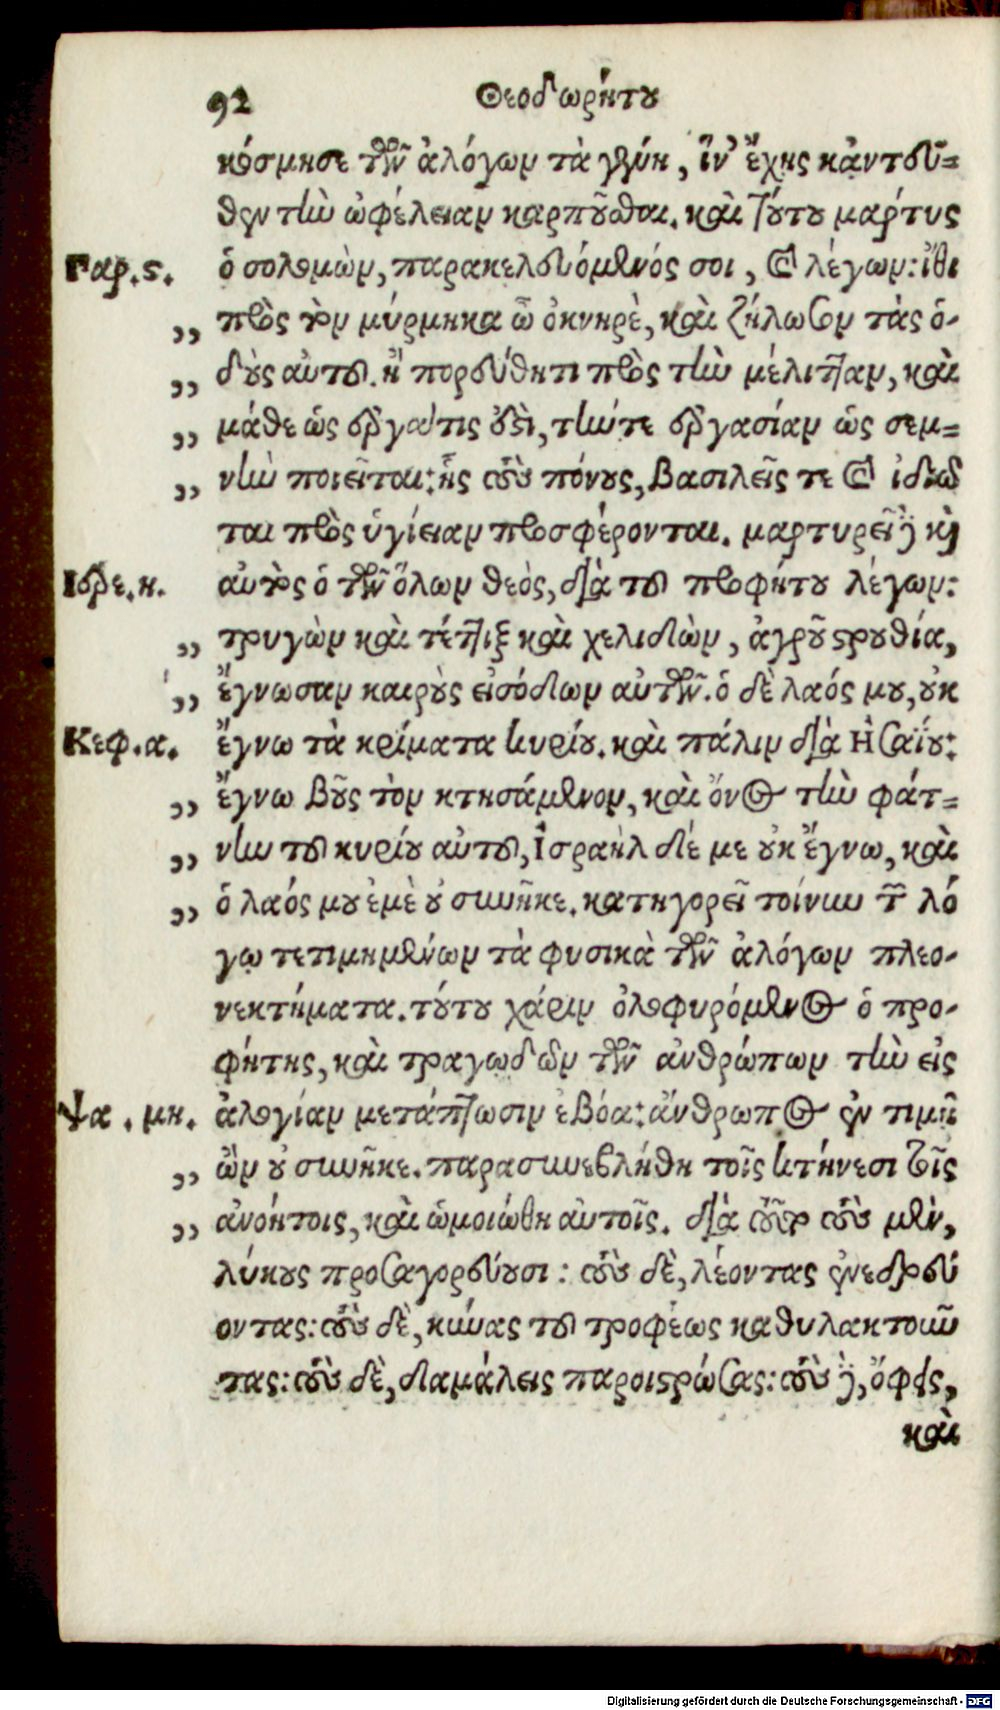 92 Θεοδωρήτου
κόσμησε τῶν ἀλόγων τὰ γένη, ἵν' ἔχῃς κἀντεῦ-
θεν τὴν ὠφέλειαν καρποῦσθαι. καὶ τούτου μάρτυς
Παρ. ς. ὁ σολομὼν, παρακελευόμενός σοι, καὶ λέγων: ἴθι
,, πρὸς τὸν μύρμηκα ὦ ὀκνηρὲ, καὶ ζήλωσον τὰς ὁ-
,, δοὺς αὐτοῦ. ἢ πορεύθητι πρὸς τὴν μέλιτταν, καὶ
,, μάθε ὡς ἐργάτις ἐστὶ, τήν τε ἐργασίαν ὡς σεμ-
,, νὴν ποιεῖται: ἧς τοὺς πόνους, βασιλεῖς τε καὶ ἰδιῶ
ται πρὸς ὑγίειαν προσφέρονται. μαρτυρεῖ δὲ καὶ
Ιερε. η. αὐτὸς ὁ τῶν ὅλων θεὸς, διὰ τοῦ προφήτου λέγων:
,, τρυγὼν καὶ τέττιξ καὶ χελιδὼν, ἀγροῦ στρουθία,
,, ἔγνωσαν καιροὺς εἰσόδων αὐτῶν. ὁ δὲ λαός μου, οὐκ
Κεφ. α. ἔγνω τὰ κρίματα κυρίου. καὶ πάλιν διὰ Ἠσαΐου:
,, ἔγνω βοῦς τὸν κτησάμενον, καὶ ὄνος τὴν φάτ-
,, νην τοῦ κυρίου αὐτοῦ, Ἰσραήλ δέ με οὐκ ἔγνω, καὶ
,, ὁ λαός μου ἐμὲ οὐ συνῆκε. κατηγορεῖ τοίνυν τῶν λό
γῳ τετιμημένων τὰ φυσικὰ τῶν ἀλόγων πλεο-
νεκτήματα. τούτου χάριν ὀλοφυρόμενος ὁ προ-
φήτης, καὶ τραγῳδῶν τῶν ἀνθρώπων τὴν εἰς
Ψα. μη. ἀλογίαν μετάπτωσιν ἐβόα: ἄνθρωπος ἐν τιμῇ
,, ὢν οὐ συνῆκε. παρασυνεβλήθη τοῖς κτήνεσι τοῖς
,, ἀνοήτοις, καὶ ὡμοιώθη αὐτοῖς. διὰ τοῦτο τοὺς μὲν,
λύκους προσαγορεύουσι: τοὺς δὲ, λέοντας ἐνεδρεύ
οντας: τοὺς δὲ, κύνας τοῦ τροφέως καθυλακτοῦν
τας: τοὺς δὲ, δαμάλεις παροιστρώσας: τοὺς δὲ, ὄφεις,
καὶ
Digitalisierung gefördert durch die Deutsche Forschungsgemeinschaft - DFG